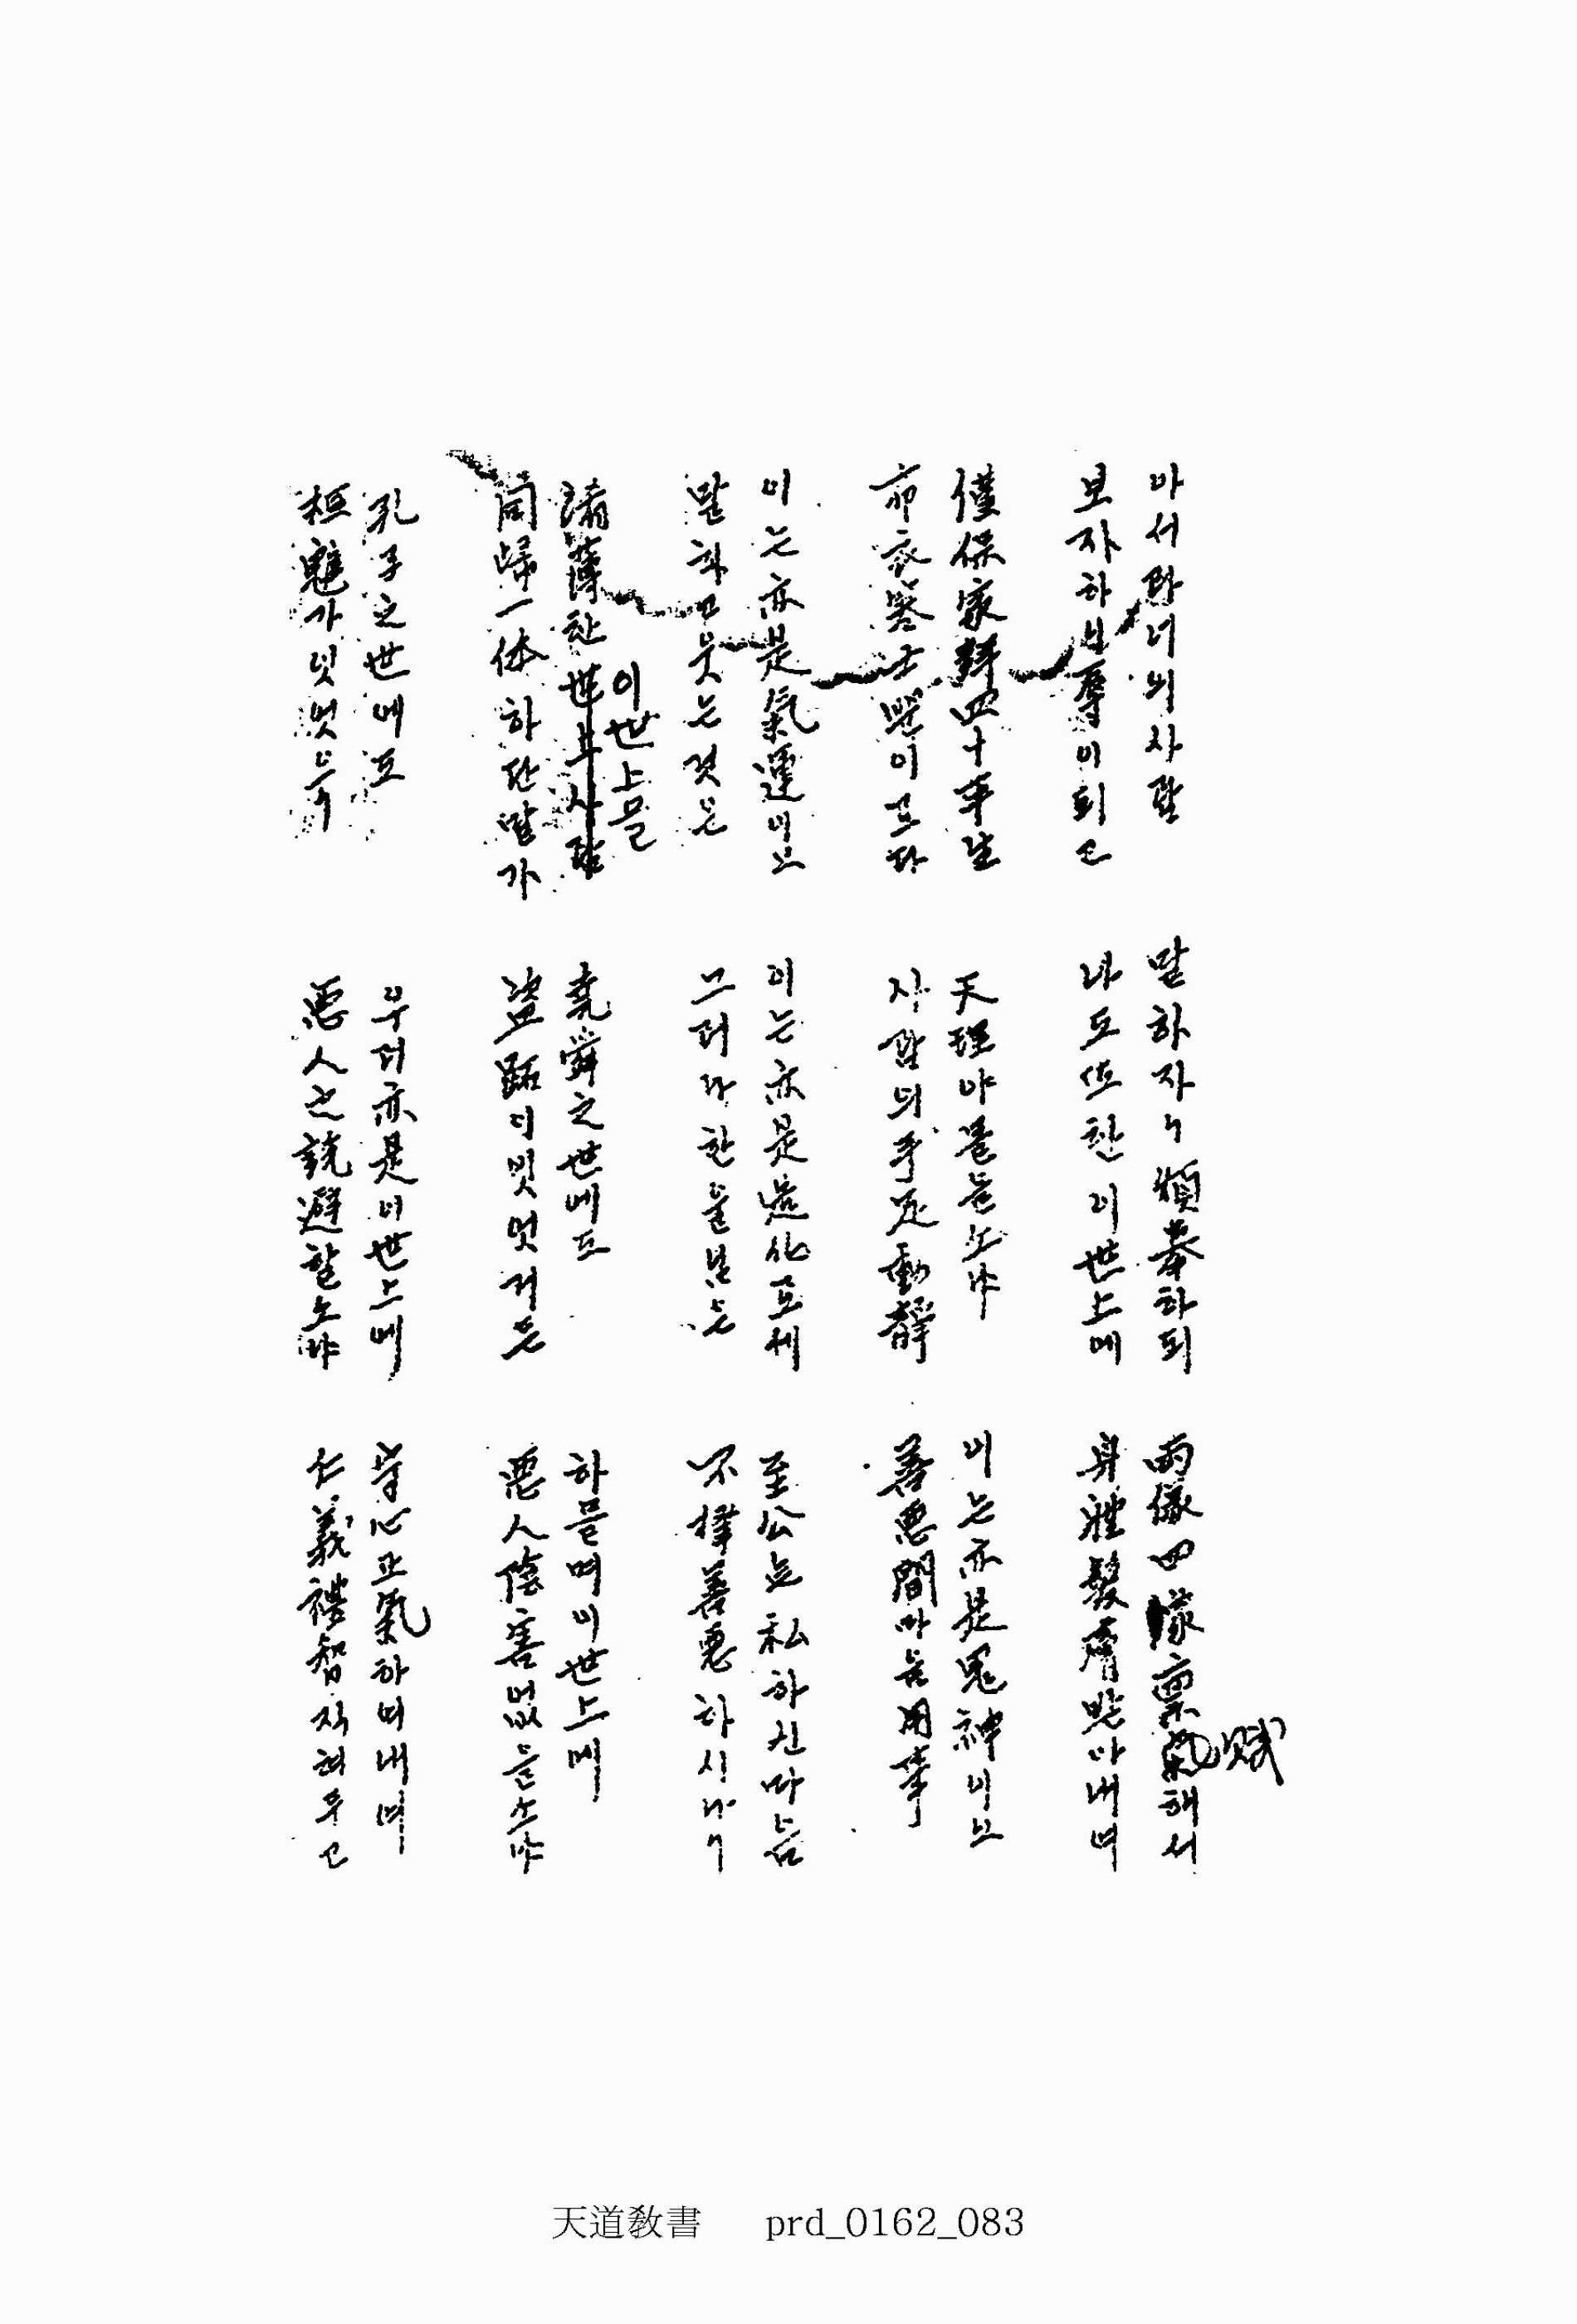 아서라너의사람
보자하니辱이되고
말하자니煩擧하되
나도또한이世上에
兩儀四象禀氣해서
賦
身體髮膚받아내여
僅保家聲四十平生
布衣寒士뿐이로다
天理야몰늘소냐
사람의手足動靜
이는亦是鬼神이오
善惡間마음用事
이는亦是氣運이오
말하고웃는것은
이는亦是造化로세
그러나한울님은
至公無私하신마음
不擇善惡하시나니
淆薄한世上사람
이世上믈
同歸一体하단말가
堯舜之世에도
盜跖이잇엇거든
하믈며이世上에
惡人陰害없을소냐
孔子之世에도
桓魋가잇엇으니
우리亦是이世上에
惡人之說避할소냐
守心正氣하여내여
仁義禮智직혀두고
天道敎書 prd_0162_083